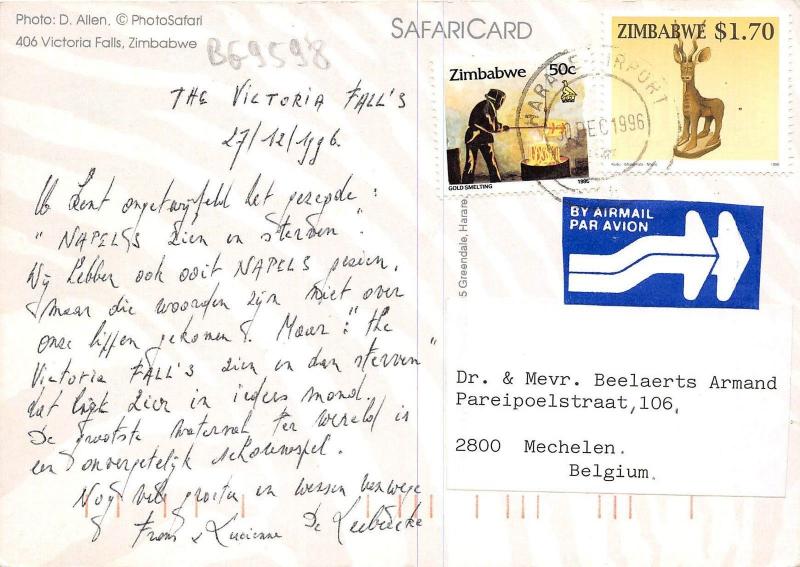 Photo: D. Allen, © PhotoSafari
406 Victoria Falls, Zimbabwe
BG9598
SAFARICARD
THE VICTORIA FALL'S
27/12/1996.
U kent ongetwijfeld het gezegde :
"NAPELS zien en sterven".
Wij hebben ook ooit NAPELS gezien,
maar die woorden zijn niet over
onze lippen gekomen. Maar : "the
VICTORIA FALL'S zien en dan sterven"
dat ligt hier in ieders mond.
De grootste waterval ter wereld is
een onvergetelijk schouwspel.
Nog vele groeten en wensen vanwege
Frans & Lucienne De
Zimbabwe 50c
GOLD SMELTING 1995
ZIMBABWE $1.70
HARARE AIRPORT
DEC 1996
5 Greendale, Harare
BY AIRMAIL
PAR AVION
Dr. & Mevr. Beelaerts Armand
Pareipoelstraat,106,
2800 Mechelen.
Belgium.